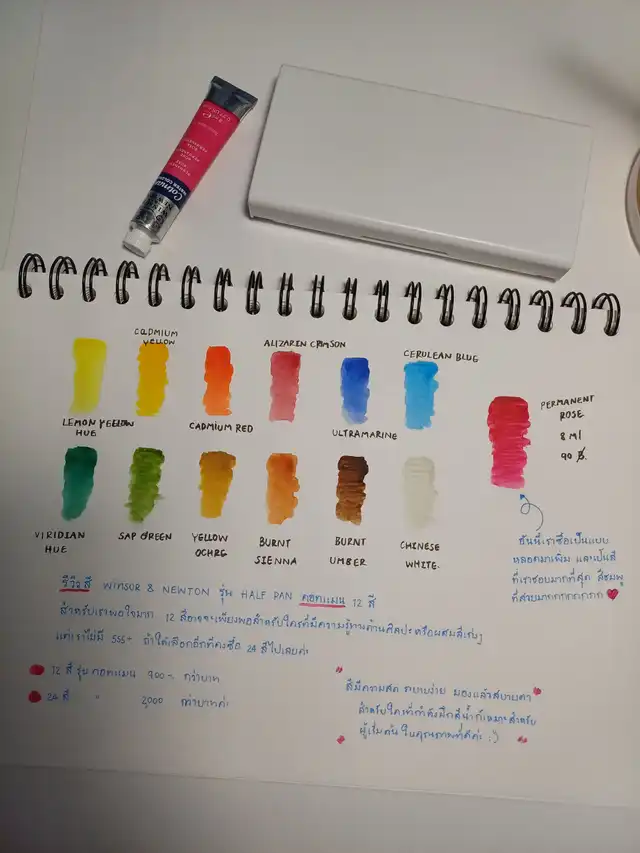 Cotman
WATER COLOUR
PERMANENT
ROSE
CADMIUM
YELLOW
ALIZARIN CRMSON
CERULEAN BLUG
LEMON YELLOW
HUE
CADMIUM RED
ULTRAMARINE
PERMANENT
ROSE
8 ml
90 ฿.
VIRIDIAN
HUE
SAP GREEN
YELLOW
OCHRG
BURNT
SIENNA
BURNT
UMBER
CHINESE
WHITE
อันนี้เราซื้อเป็นแบบ
หลอดมาเพิ่ม และเป็นสี
ที่เราชอบมากที่สุด สีชมพู
ที่สวยมากกกกกกก
รีวิวสี WINSOR & NEWTON รุ่น HALF PAN คอตแมน 12 สี
สำหรับเราพอใจมาก 12 สีอาจจะเพียงพอสำหรับใครที่มีความรู้ทางด้านศิลปะหรือผสมสีเก่ง
แต่เราไม่มี 555+ ถ้าให้เลือกอีกทีคงซื้อ 24 สีไปเลยค่ะ
12 สี รุ่น คอตแมน 900.- กว่าบาท
24 สี " 2,000 กว่าบาทค่ะ
สีมีความสด ระบายง่าย มองแล้วสบายตา
สำหรับใครที่กำลังฝึกสีน้ำก็เหมาะสำหรับ
ผู้เริ่มต้น ในคุณภาพที่ดีค่ะ :)